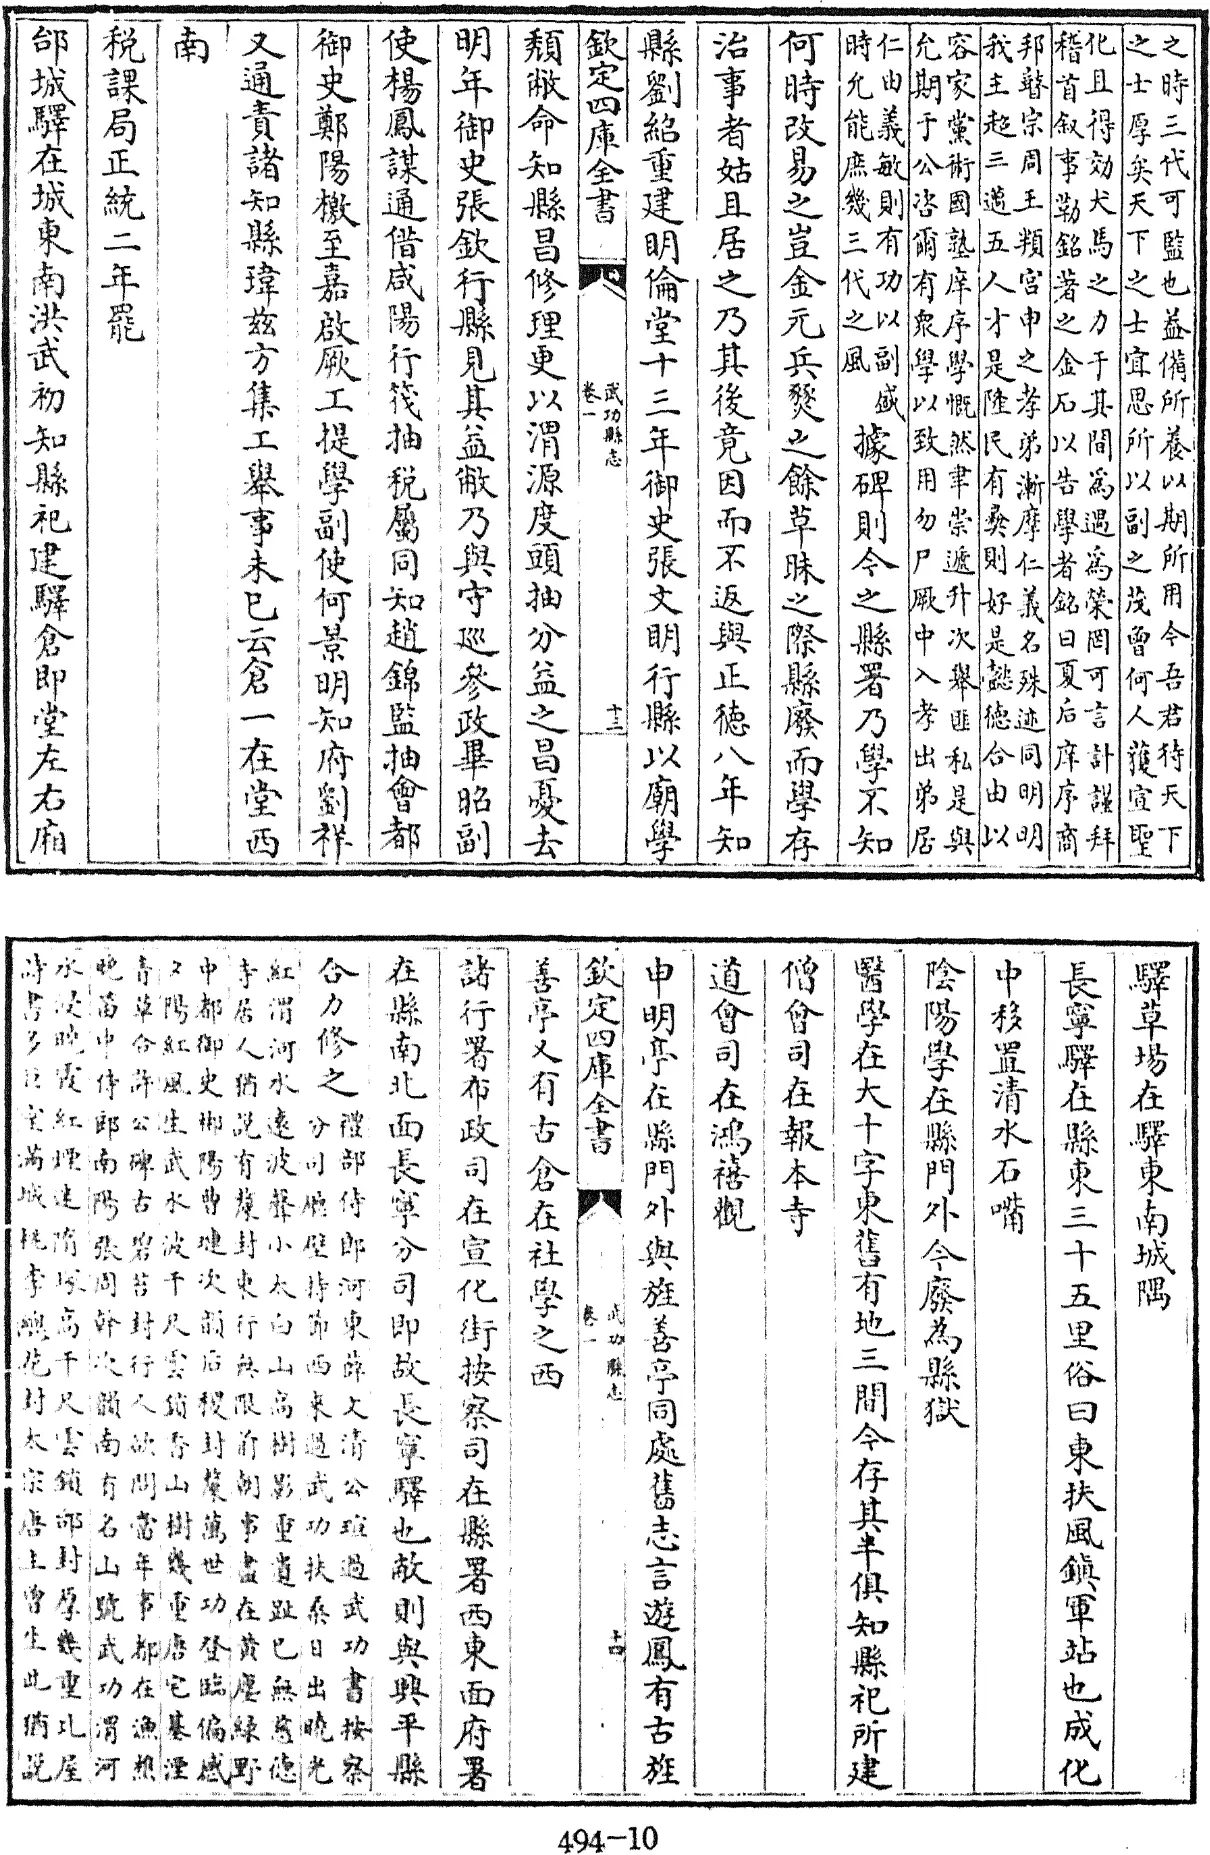 之時三代可監也益備所養以期所用今吾君待天下
之士厚矣天下之士宜思所以副之茂曾何人獲宣聖
化且得効犬馬之力于其間為遇為榮罔可言計謹拜
稽首叙事勒銘著之金石以告學者銘曰夏后庠序商
邦瞽宗周王頖宫申之孝弟漸摩仁義名殊迹同明明
我主超三邁五人才是陸民有彜則好是懿德合由以
容家黨術國塾庠序學慨然聿崇遞升次舉匪私是與
允期于公咨爾有衆學以致用勿尸厥中入孝出弟居
仁由義敏則有功以副盛
時允能庶幾三代之風
據碑則今之縣署乃學不知
何時改易之豈金元兵燹之餘草昧之際縣廢而學存
治事者姑且居之乃其後竟因而不返與正德八年知
縣劉紹重建明倫堂十三年御史張文明行縣以廟學
欽定四庫全書
武功縣志
卷一
十三
頽敝命知縣昌修理更以渭源度頭抽分益之昌憂去
明年御史張欽行縣見其益敝乃與守巡參政畢昭副
使楊鳳謀通借咸陽行筏抽税屬同知趙錦監抽會都
御史鄭陽檄至嘉啟厥工提學副使何景明知府劉祥
又通責諸知縣瑋茲方集工舉事未已云倉一在堂西
南
税課局正統二年罷
邰城驛在城東南洪武初知縣祀建驛倉即堂左右廂
驛草場在驛東南城隅
長寧驛在縣東三十五里俗曰東扶風鎮軍站也成化
中移置清水石嘴
陰陽學在縣門外今廢為縣獄
醫學在大十字東舊有地三間今存其半俱知縣祀所建
僧會司在報本寺
道會司在鴻禧觀
申明亭在縣門外與旌善亭同處舊志言遊鳳有古旌
欽定四庫全書
武功縣志
卷一
十四
善亭又有古倉在社學之西
諸行署布政司在宣化街按察司在縣署西東面府署
在縣南北面長寧分司即故長寧驛也敝則與興平縣
合力修之
禮部侍郎河東薛文清公瑄過武功書按察
分司廳壁持節西來過武功扶桑日出曉光
紅渭河水遠波聲小太白山高樹影重遺趾已無慈德
寺居人猶説有棄封東行無限前朝事盡在黄塵緑野
中都御史郴陽曹璉次韻后稷封棄萬世功登臨偏感
夕陽紅風生武水波千尺雲鎖吞山樹幾重唐宅基湮
青草合許公碑古碧苔封行人欲問當年事都在漁樵
晚笛中侍郎南陽張周幹次韻南有名山號武功渭河
水浸曉霞紅煙迷隋塚高千尺雲鎖邰封厚幾重比屋
詩書多巨室滿城桃李燦花封太宗唐主曾生此猶説
494-10